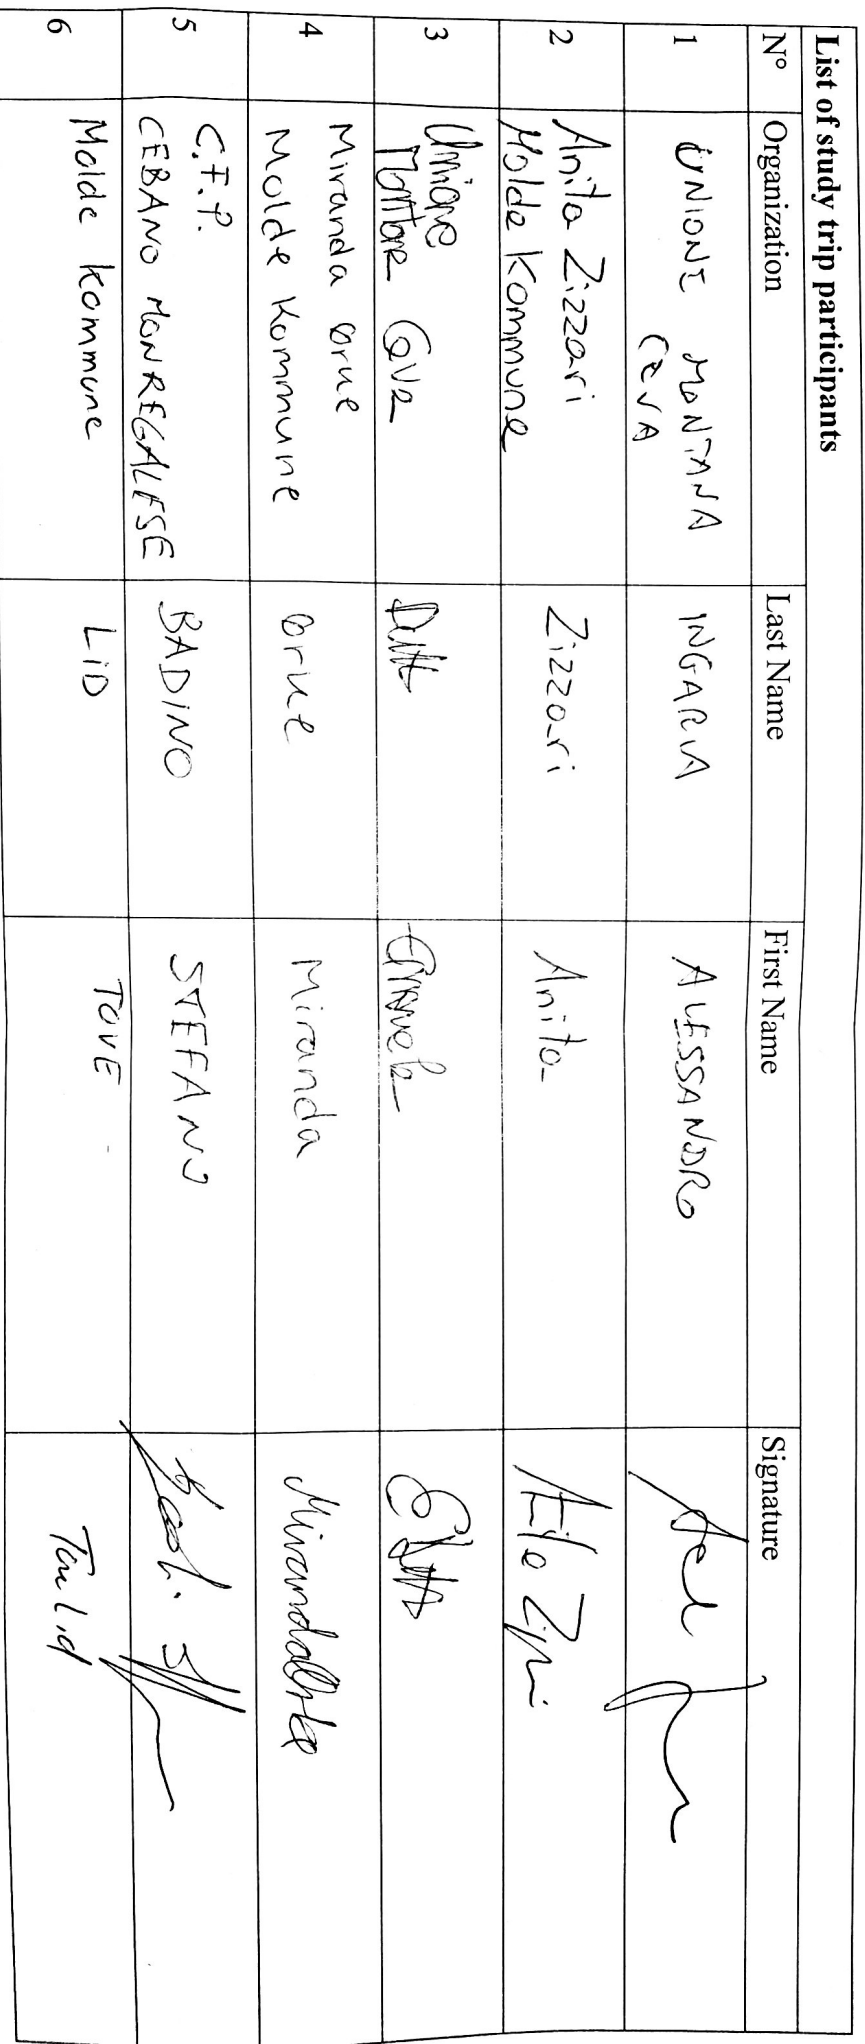 List of study trip participants
N° Organization Last Name First Name Signature
1 UNIONE MONTANA CEVA INGARIA ALESSANDRO
2 Anita Zizzari Molde Kommune Zizzari Anita
3 Unione Montana Ceva
4 Miranda Brue Molde Kommune Brue Miranda
5 C.F.P. CEBANO MONREGALESE BADINO STEFANO
6 Molde Kommune LID TOVE Tove Lid